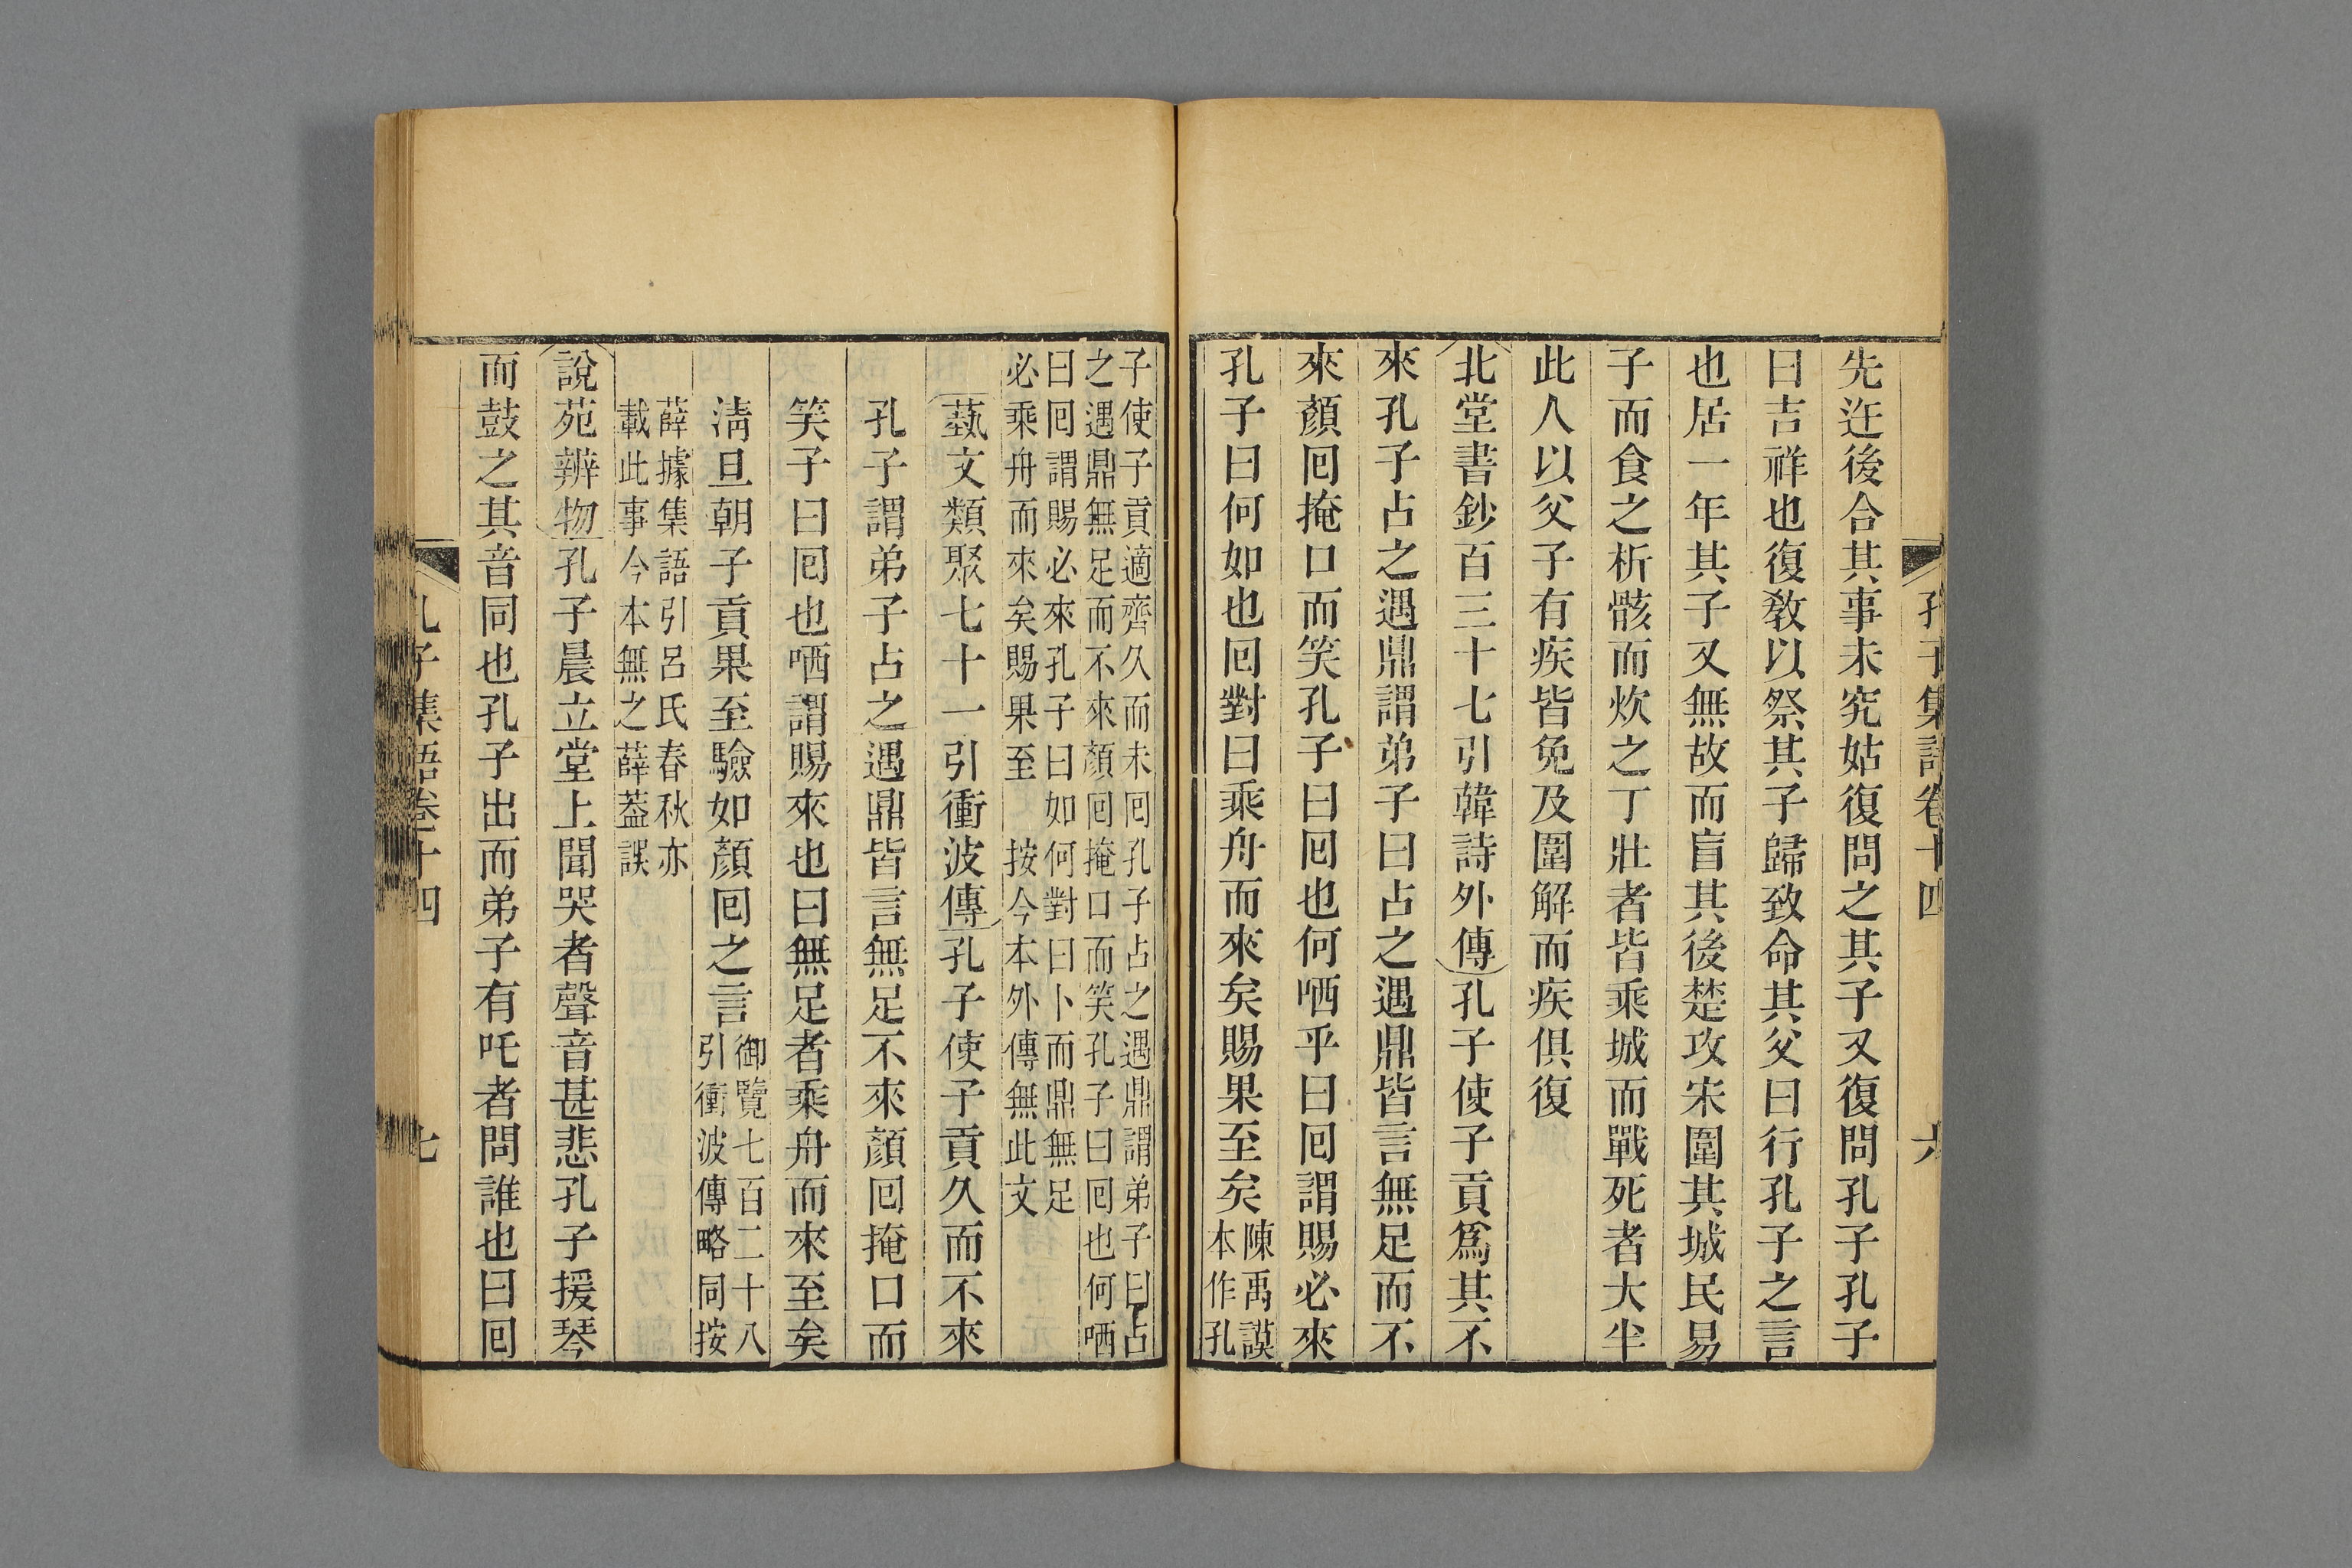 孔子集語卷十四 六
先迕後合其事未究姑復問之其子又復問孔子孔子
曰吉祥也復敎以祭其子歸致命其父曰行孔子之言
也居一年其子又無故而盲其後楚攻宋圍其城民易
子而食之析骸而炊之丁壯者皆乘城而戰死者大半
此人以父子有疾皆免及圍解而疾俱復
北堂書鈔百三十七引韓詩外傳孔子使子貢爲其不
來孔子占之遇鼎謂弟子曰占之遇鼎皆言無足而不
來顏回掩口而笑孔子曰回也何哂乎曰回謂賜必來
孔子曰何如也回對曰乘舟而來矣賜果至矣陳禹謨
本作孔
子使子貢適齊久而未回孔子占之遇鼎謂弟子曰占
之遇鼎無足而不來顏回掩口而笑孔子曰回也何哂
曰回謂賜必來孔子曰如何對曰卜而鼎無足
必乘舟而來矣賜果至 按今本外傳無此文
藝文類聚七十一引衝波傳孔子使子貢久而不來
孔子謂弟子占之遇鼎皆言無足不來顏回掩口而
笑子曰回也哂謂賜來也曰無足者乘舟而來至矣
淸旦朝子貢果至驗如顏回之言御覽七百二十八
引衝波傳略同按
薛據集語引呂氏春秋亦
載此事今本無之薛葢誤
說苑辨物孔子晨立堂上聞哭者聲音甚悲孔子援琴
而鼓之其音同也孔子出而弟子有吒者問誰也曰回
孔子集語卷十四 七